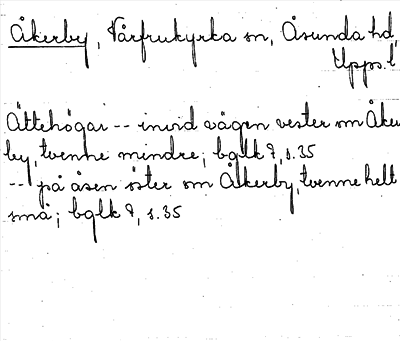 Åkerby, Vårfrukyrka sn, Åsunda hd,
Upps. l
Ättehögar -- invid vägen vester om Åker
by, tvenne mindre; bqlk ?, s.35
-- på åsen öster om Åkerby, tvenne helt
små; bqlk ?, s.35